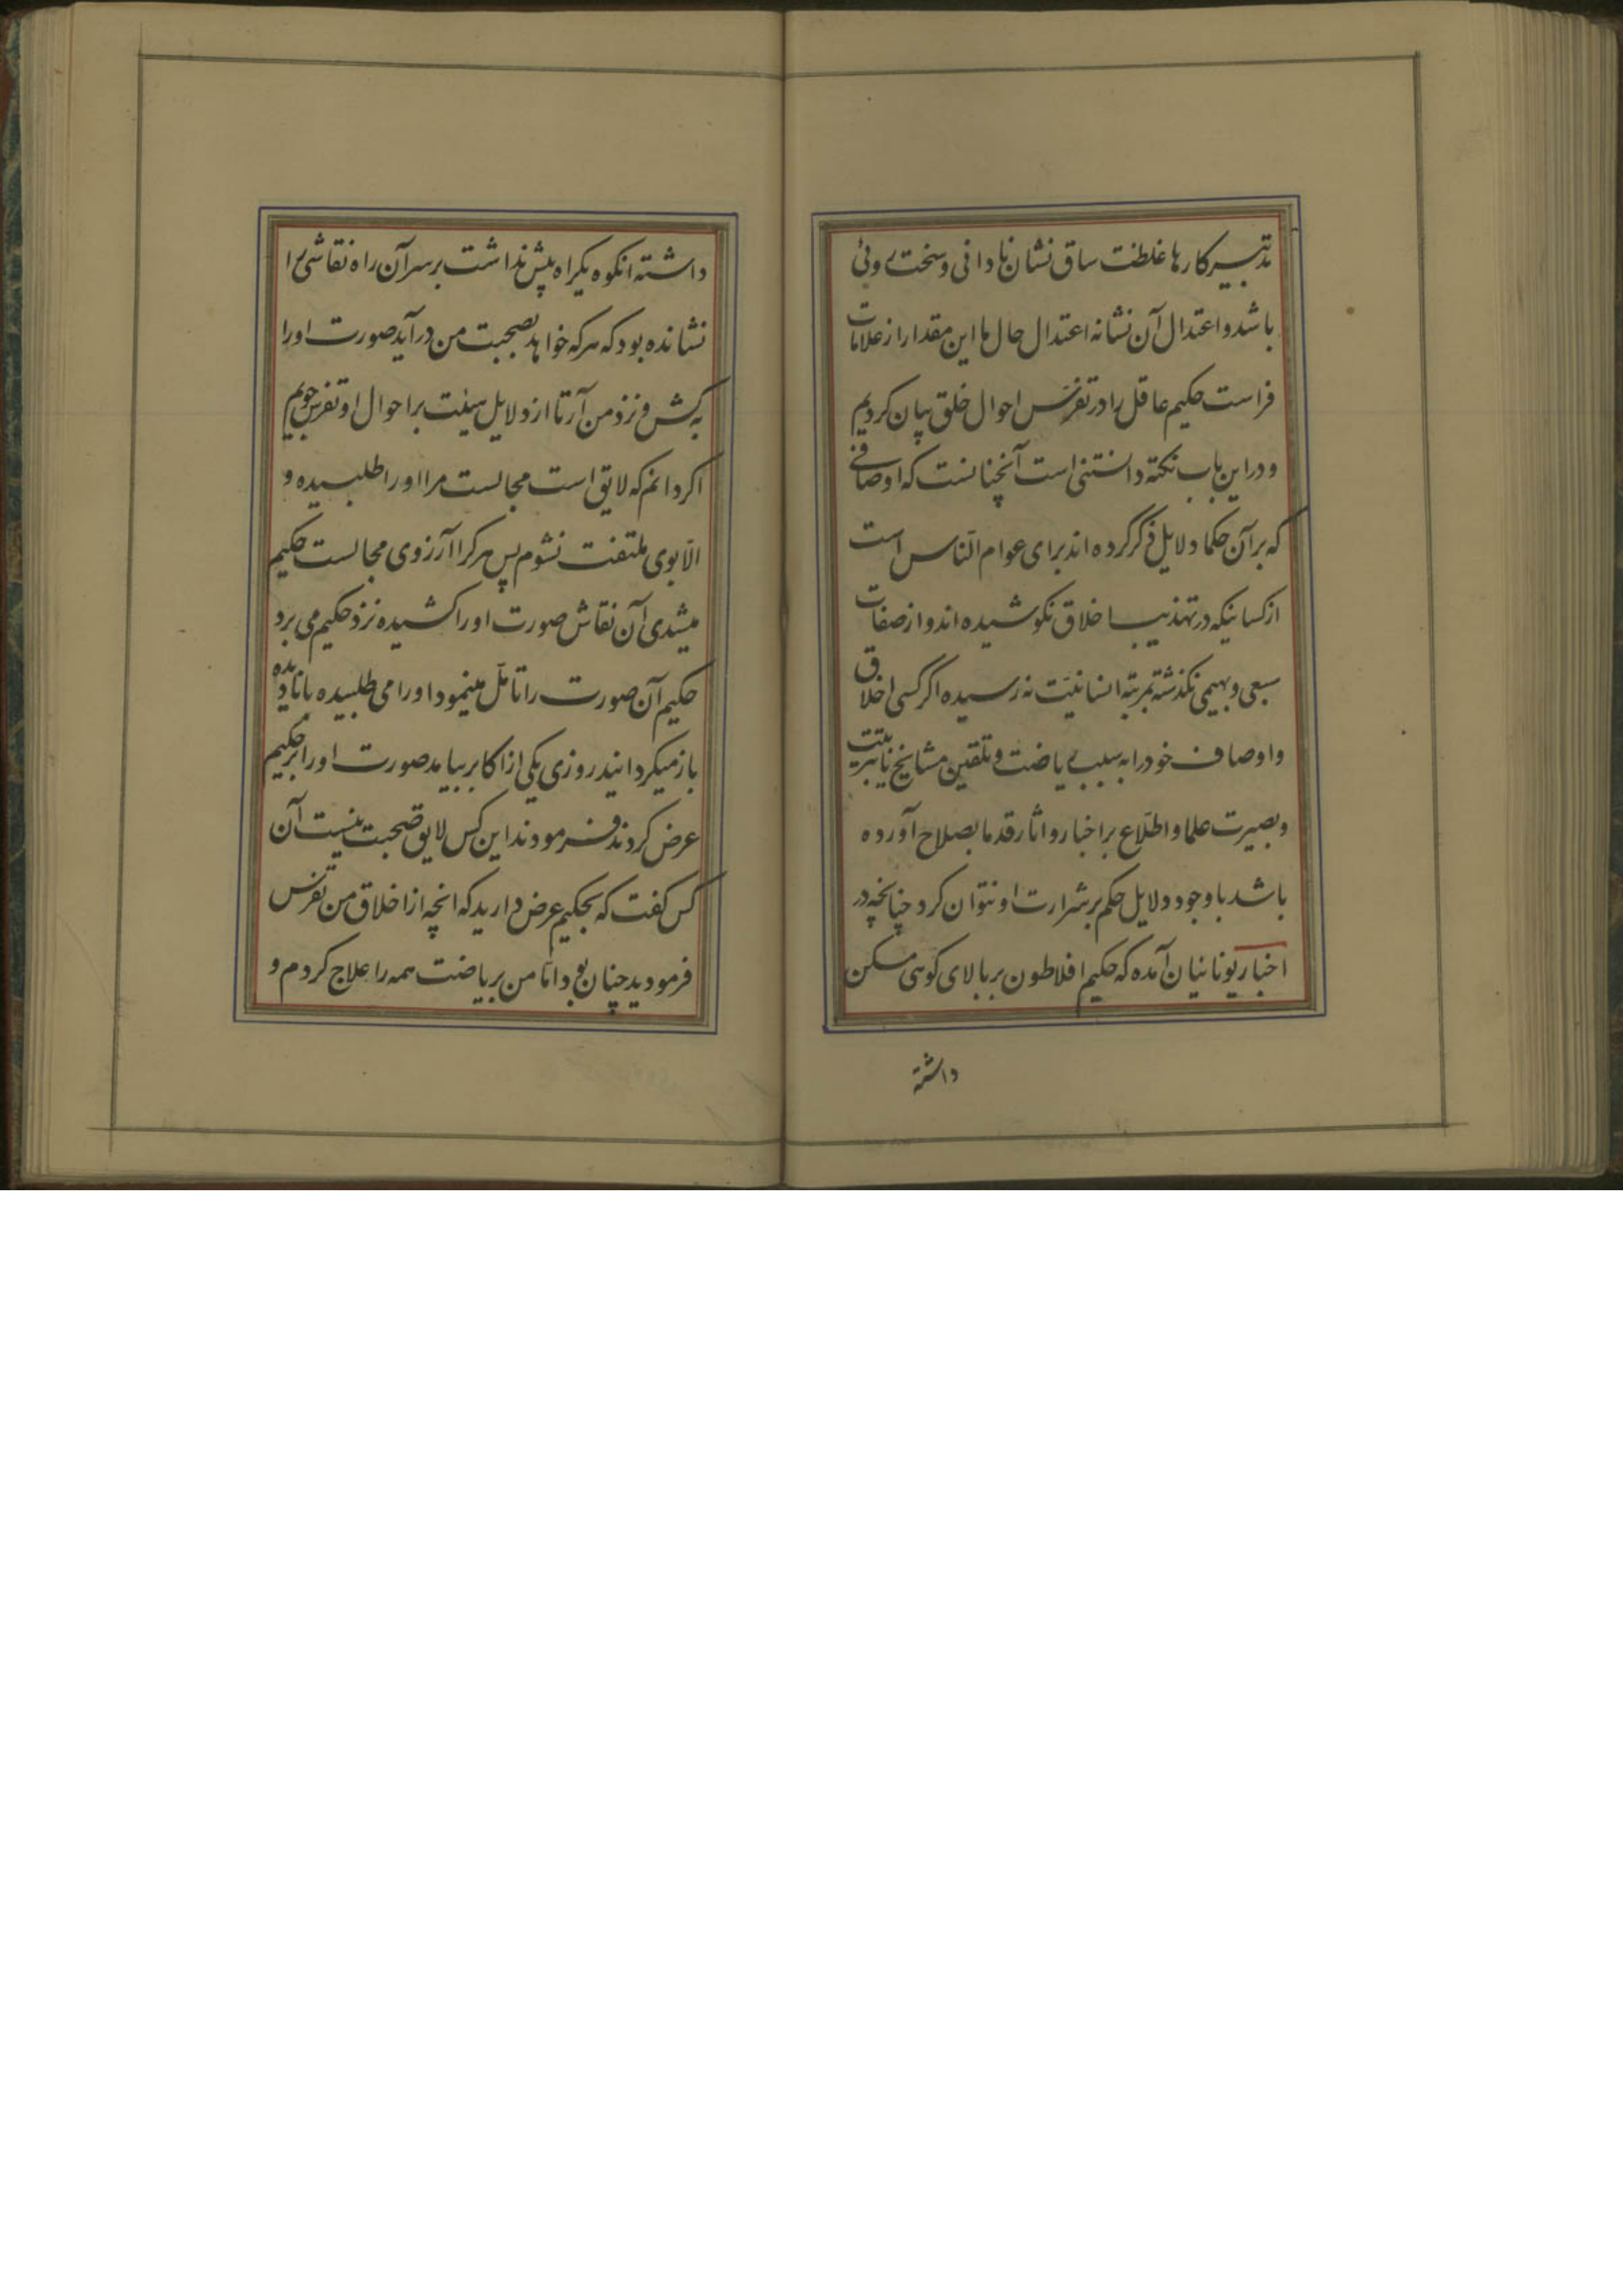 تدبیر کارها غلظت ساق نشان نادانی و سخت روئی
باشد و اعتدال آن نشانه اعتدال حال ها این مقدار از علامات
فراست حکیم عاقل را در تفرّس احوال خلق بیان کردیم
و در این باب نکته دانستنی است آنچنانست که اوصافی
که بر آن حکما دلایل ذکر کرده اند برای عوام النّاس است
از کسانیکه در تهذیب اخلاق نکوشیده اند و از صفات
سبعی و بهیمی نکذشته بمرتبه انسانیّت نه رسیده اگر کسی اخلاق
و اوصاف خود را به سبب ریاضت و تلقین مشایخ یا تربیت
و بصیرت علما و اطّلاع بر اخبار و اثار قدما بصلاح آورده
باشد با وجود دلایل حکم بر شرارت او نتوان کرد چنانچه در
اخبار یونانیان آمده که حکیم افلاطون بر بالای کوهی مسکن
داشته
داشته انکوه یکراه بیش نداشت بر سر آن راه نقاشی را
نشانده بود که هر که خواهد بصحبت من در آید صورت او را
بکش و نزد من آر تا از دلایل هیئت بر احوال او تفرس جویم
اکر دانم که لایق است مجالست مرا او را طلبیده و
الّا بوی ملتفت نشوم پس هر کرا آرزوی مجالست حکیم
میشدی آن نقاش صورت او را کشیده نزد حکیم می برد
حکیم آن صورت را تامّل مینمود او را می طلبیده یا نادیده
باز میکردانید روزی یکی از اکابر بیامد صورت او را بر حکیم
عرض کردند فرمودند این کس لایق صحبت نیست آن
کس کفت که بحکیم عرض دارید که انچه از اخلاق من تفرس
فرمودید چنان بود امّا من بریاضت همه را علاج کردم و